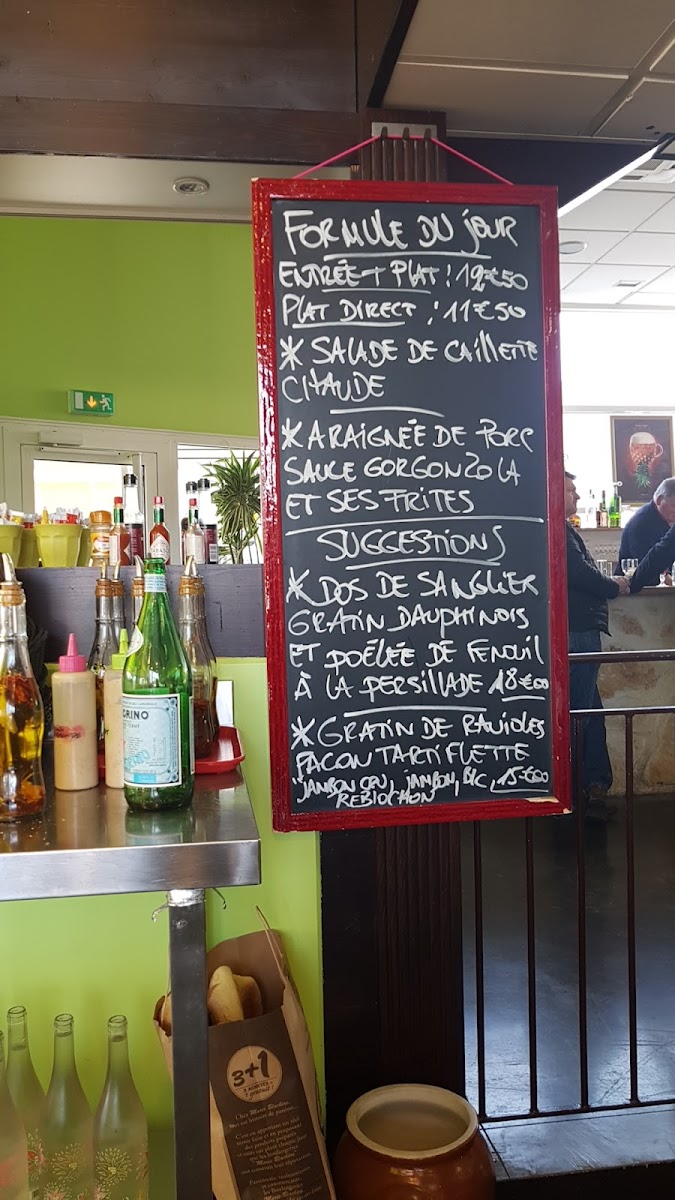 FORMULE DU JOUR
ENTRÉE + PLAT : 12€50
PLAT DIRECT : 11€50
* SALADE DE CAILLETTE
CHAUDE
* ARAIGNÉE DE PORC
SAUCE GORGONZOLA
ET SES FRITES
SUGGESTIONS
* DOS DE SANGLIER
GRATIN DAUPHINOIS
ET POÊLÉE DE FENOUIL
À LA PERSILLADE 18€00
* GRATIN DE RAVIOLES
FACON TARTIFLETTE
JAMBON CRU, JAMBON, BLC, 15€00
REBLOCHON
GRINO
3+1